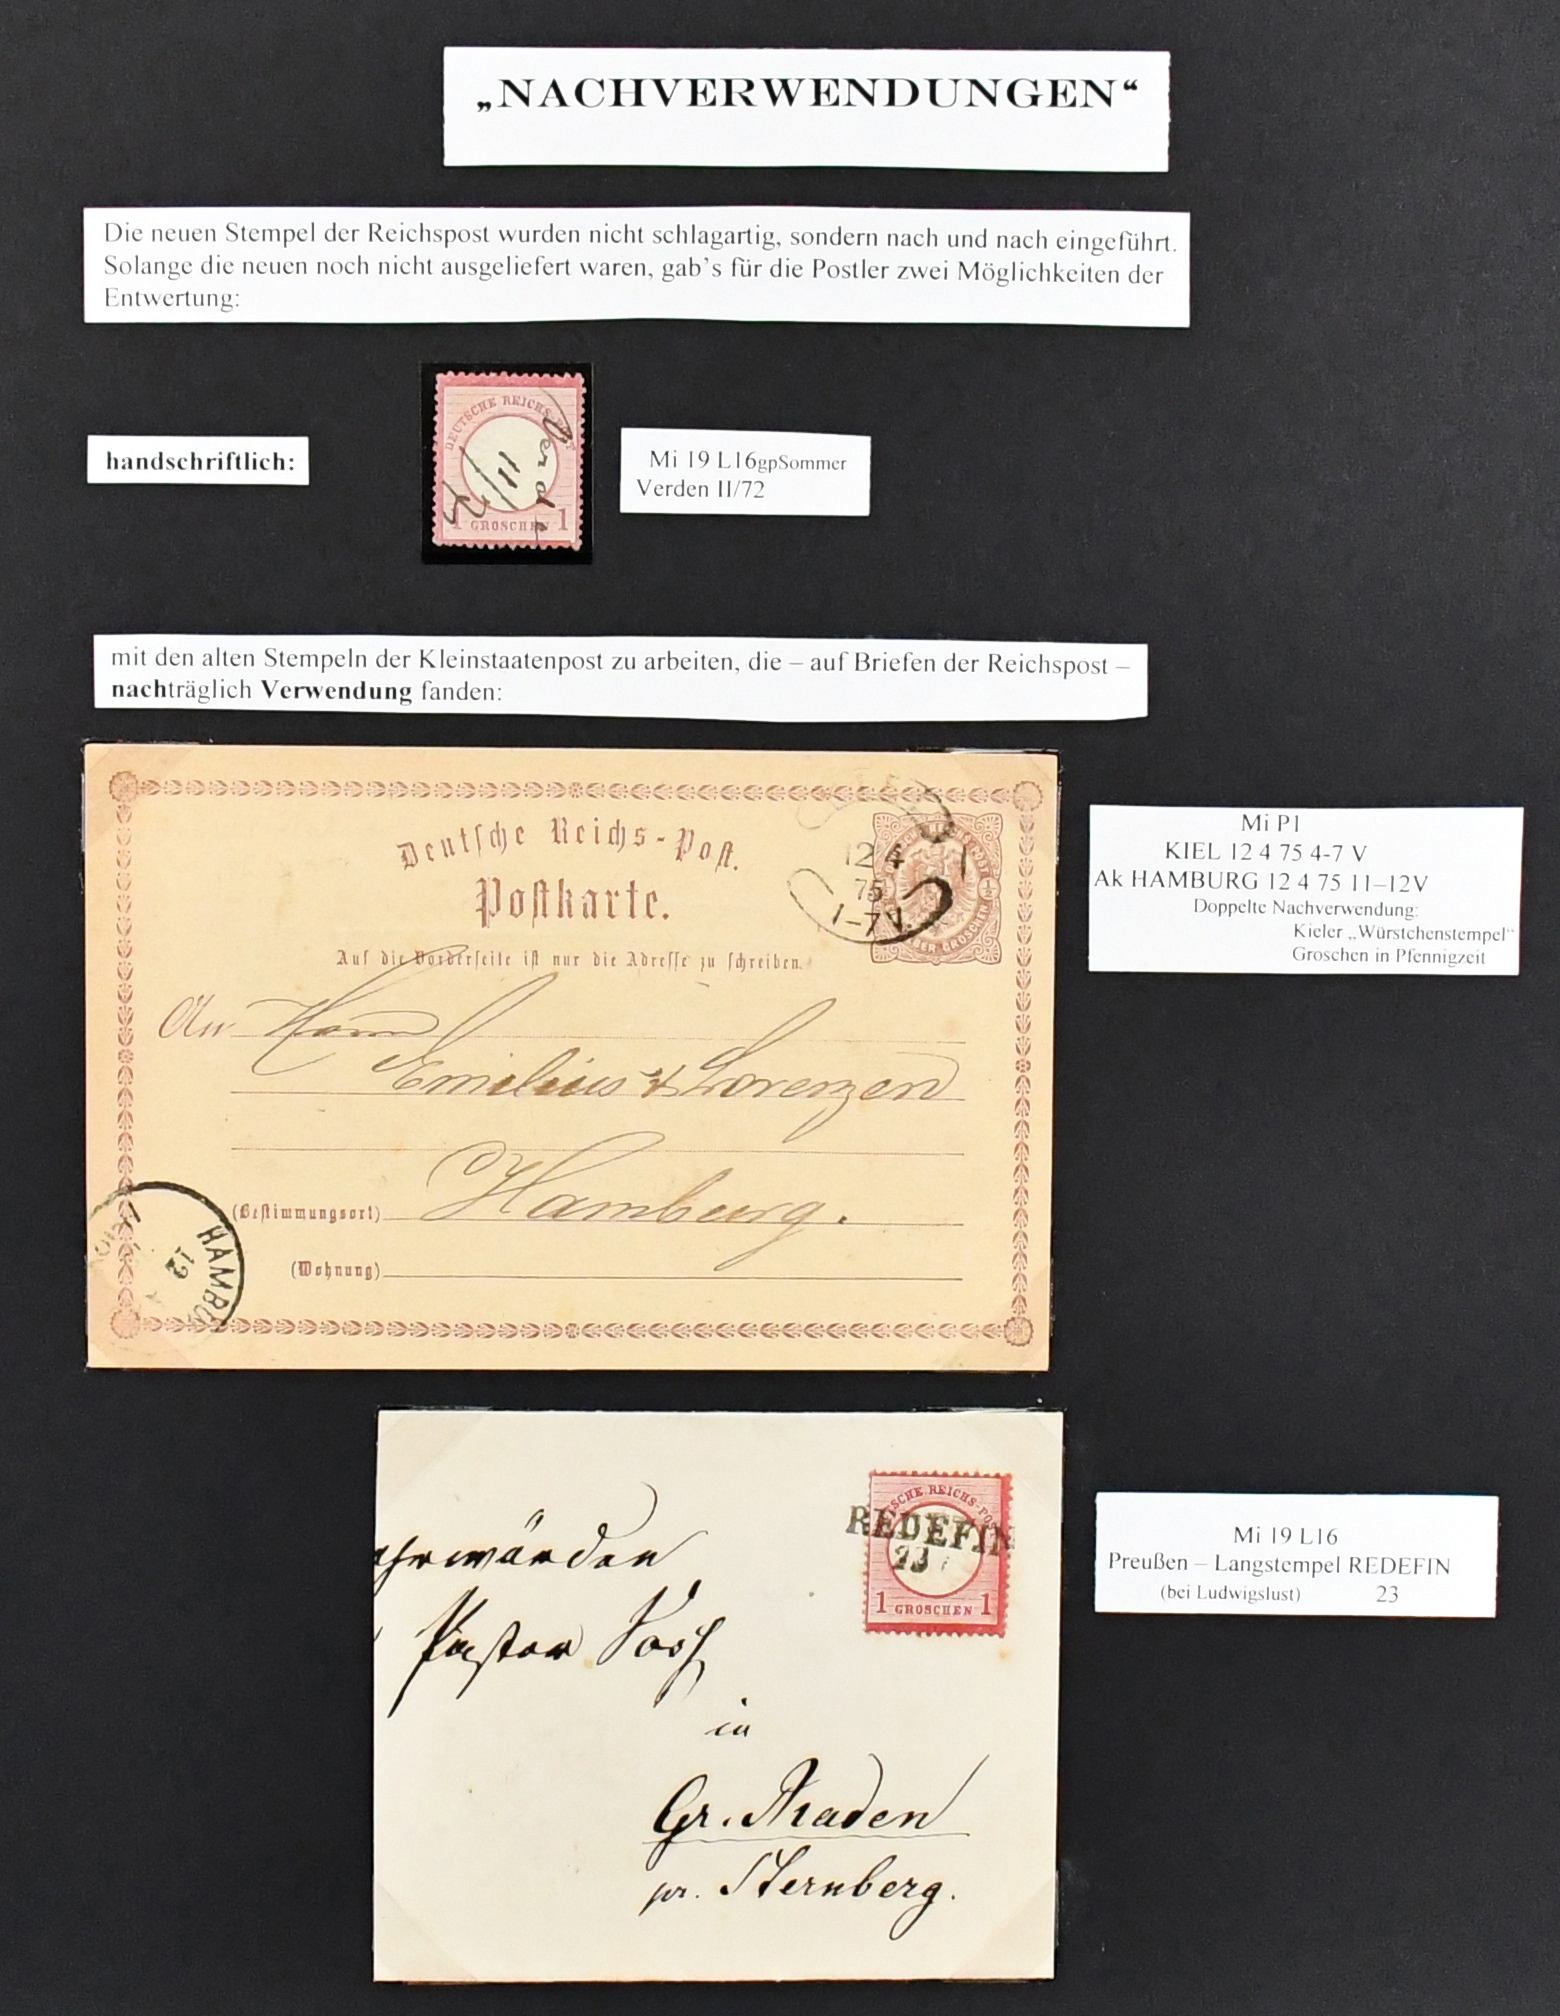 „NACHVERWENDUNGEN“
Die neuen Stempel der Reichspost wurden nicht schlagartig, sondern nach und nach eingeführt.
Solange die neuen noch nicht ausgeliefert waren, gab's für die Postler zwei Möglichkeiten der
Entwertung:
handschriftlich:
DEUTSCHE REICHS-POST
11/72
1 GROSCHEN 1
Mi 19 L16gpSommer
Verden II/72
mit den alten Stempeln der Kleinstaatenpost zu arbeiten, die – auf Briefen der Reichspost –
nachträglich Verwendung fanden:
Deutsche Reichs-Post.
Postkarte.
12 4
75
-7 V.
Auf die Vorderseite ist nur die Adresse zu schreiben.
An Herrn
Emilius & Lorenzen
(Bestimmungsort) Hamburg.
(Wohnung)
HAMBU
12
Mi P1
KIEL 12 4 75 4-7 V
Ak HAMBURG 12 4 75 11–12V
Doppelte Nachverwendung:
Kieler „Würstchenstempel“
Groschen in Pfennigzeit
REICHS-PO
REDEFIN
23
1 GROSCHEN 1
Pastor
in
Gr. Raden
pr. Sternberg.
Mi 19 L16
Preußen – Langstempel REDEFIN
(bei Ludwigslust) 23